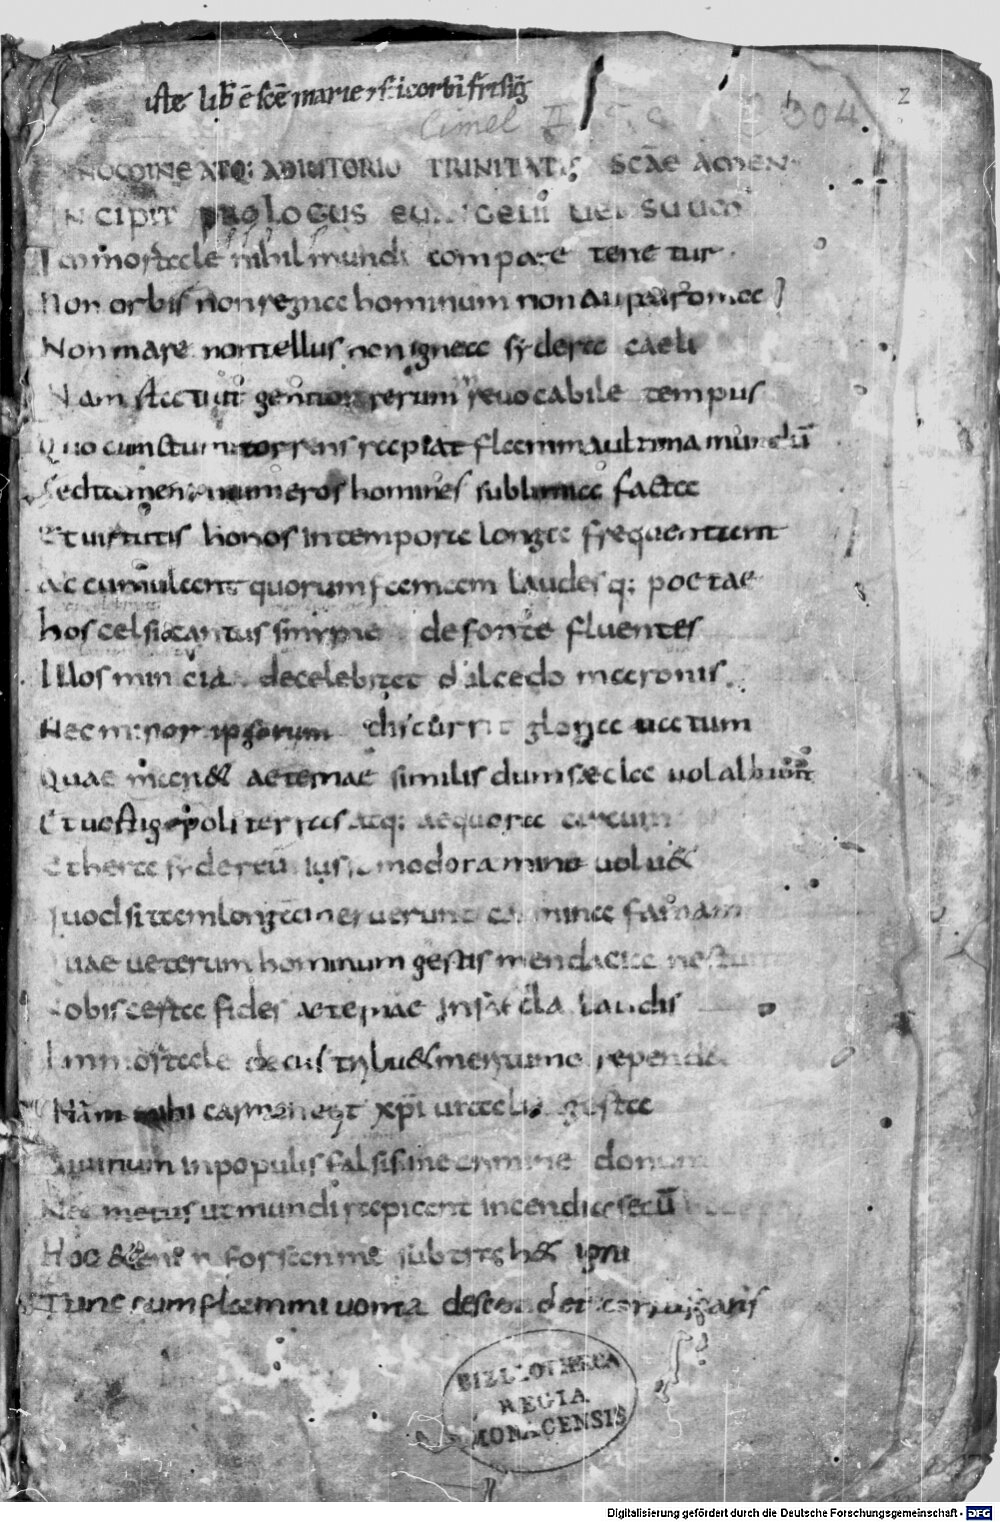 iste lib̄ ē sc̄e marie ⁊ sc̄i corbī frisīg
Cimel 304
2
NOMINE ATQ: ADIUTORIO TRINITATIS SCĀE AMEN
INCIPIT PROLOGUS EUANGELII UERSUUM
Inmortale nihil mundi compage tenetur
Non orbis non regna hominum non aurea roma
Non mare non tellus non ignea sydera caeli
Nam statuit genitor rerum reuocabile tempus
Quo cunctum torrens rapiat flamma ultima mundū
Sed tamen numeros homines sublimia facta
Et uirtutis honos in tempora longa frequentant
Ac cumulant quorum famam laudesq: poetae
hos celsi cantus smirnae de fonte fluentes
Illos minciade celebrat dulcedo maronis
Nec minor ipsorum discurrit gloria uatum
Quae man& aeternae similis dum saecla uolabunt
Et uertigo poli terras atq: aequora circum
Ethera sydereū iusso moderamine uolu&
Quod si tam longam meruerunt carmina famam
Quae ueterum hominum gestis mendacia nectunt
Nobis certa fides aeternae in saecla laudis
Inmortale decus tribu& meritumq rependet
Nam mihi carmen erit xp̄i uitalia gesta
Diuinum in populis falsi sine crimine donum
Nec metus ut mundi rapiant incendia secū
Hoc &enim forsan me subtrah& igni
Tunc cum flammiuoma descendet coruscans
BIBLIOTHECA
REGIA
MONACENSIS
Digitalisierung gefördert durch die Deutsche Forschungsgemeinschaft - DFG